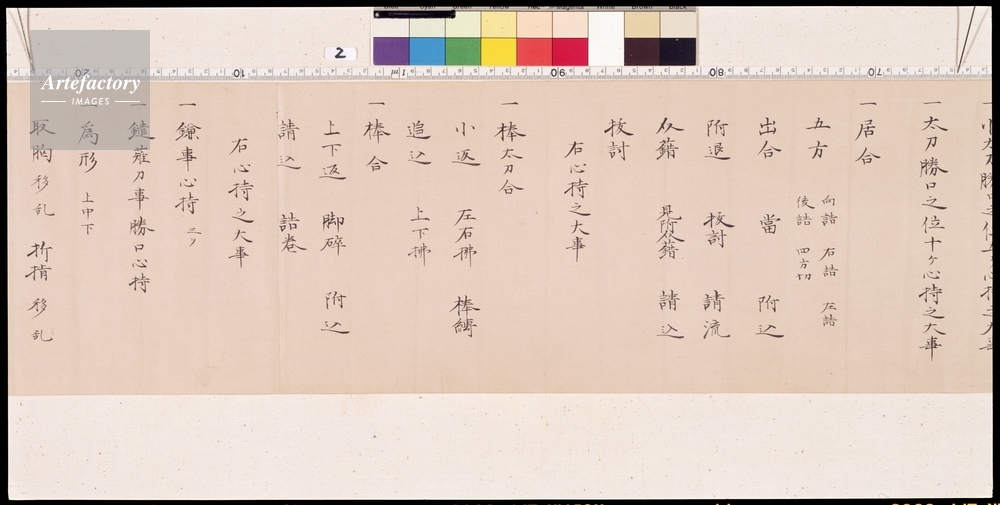 一太刀勝口之位十ヶ心持之大事
一居合
五方 向詰 右詰 左詰
後詰 四方切
出合 當 附込
附退 抜討 請流
抜討
右心持之大事
一棒太刀合
小返 左右拂 棒縛
追込 上下拂
一棒合
上下返 脚砕 附込
請込 詰巻
右心持之大事
一鎌事心持
刀事勝口心持
為形 上中下
移乱 移乱
2
Artefactory
IMAGES
Blue Cyan Green Yellow Red Magenta White Brown Black
20 10 1m 90 80 70